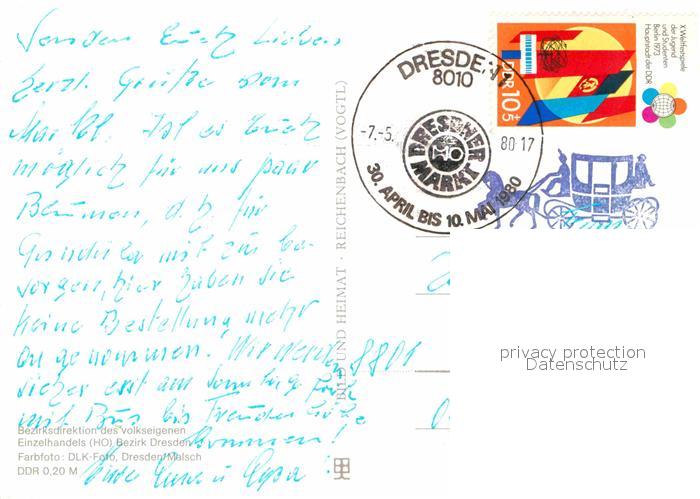 Senden Euch Lieben
herzl. Grüße vom
Markt. Ist es Euch
möglich für uns paar
Blumen, d. h. für
mit zu be-
sorgen, hier haben sie
keine Bestellung mehr
angenommen. Wir werden
sicher erst am Sonntag früh
mit Bus bis
kommen!
Eure u. Opa!
Bezirksdirektion des volkseigenen
Einzelhandels (HO) Bezirk Dresden
Farbfoto: DLK-Foto, Dresden/Malsch
DDR 0,20 M
BILD UND HEIMAT · REICHENBACH (VOGTL)
DRESDEN 1
8010
-7.-5.
80-17
DRESDNER
MARKT
30. APRIL BIS 10. MAI 1980
DDR 10+5
X. Weltfestspiele
der Jugend
und Studenten
Berlin 1973
Hauptstadt der DDR
8801
privacy protection
Datenschutz